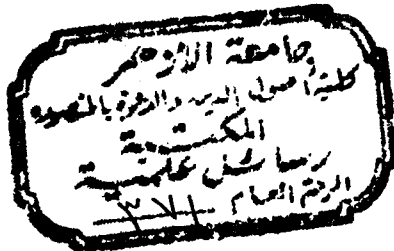 جامعة الأزهر
كلية أصول الدين والدعوة بالمنصورة
المكتبة
رسائل علمية
الرقم العام ٣٧١